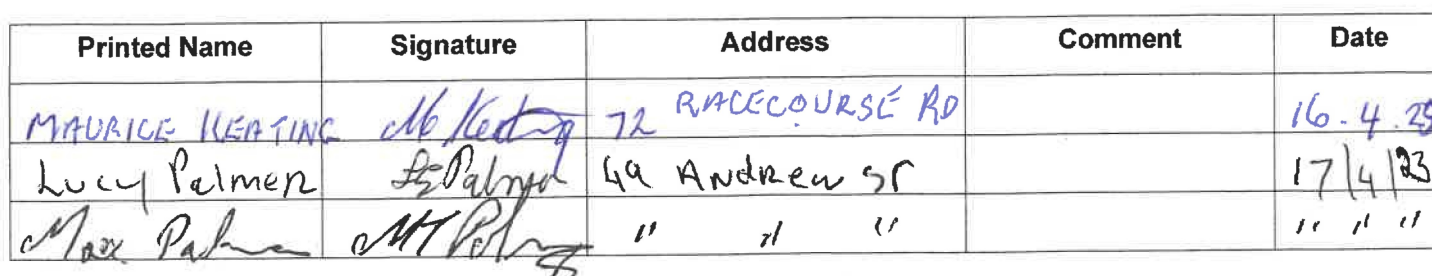 Printed Name Signature Address Comment Date
MAURICE KEATING M Keating 72 RACECOURSE RD 16.4.23
Lucy Palmer Palmer 49 Andrew St 17/4/23
Max Palmer " " " " " "